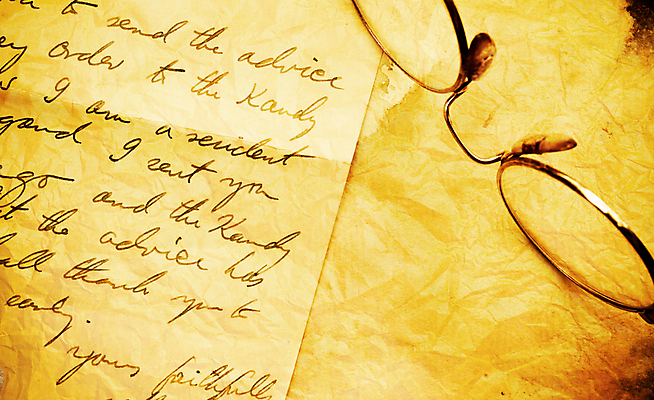 to send the advice
order to the Kandy
I am a resident
I sent you
ago and the Kandy
the advice has
thank you to
early.
yours faithfully